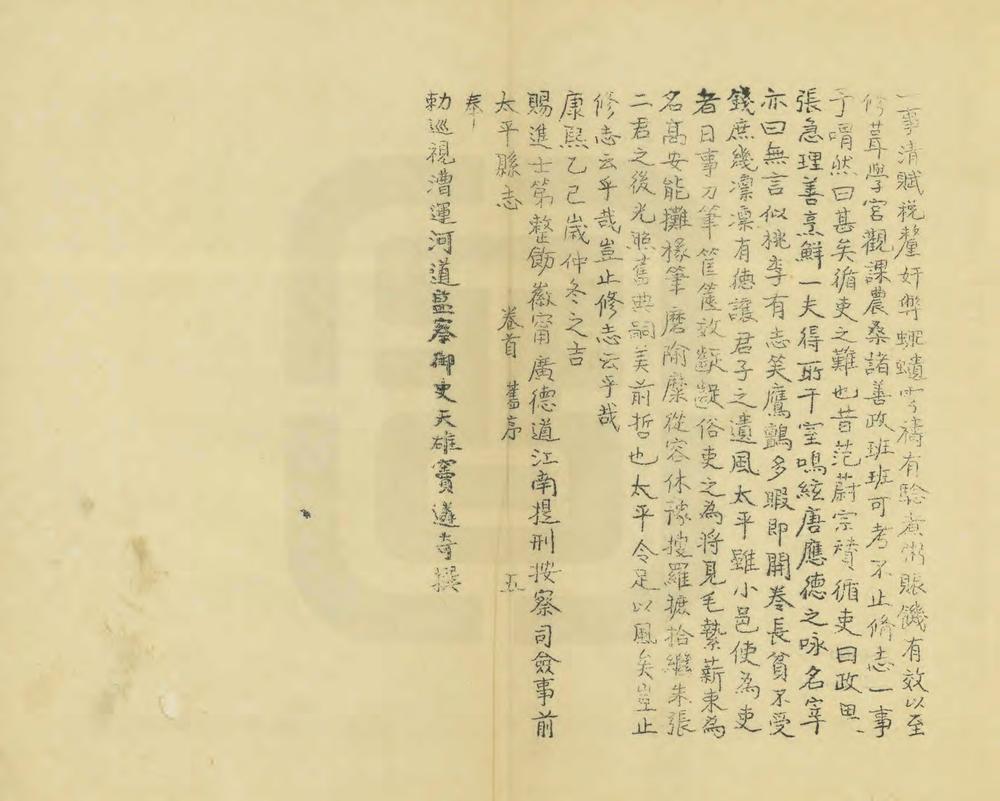 一事清賦稅釐奸弊蝗蝻雩禱有驗煮粥賑饑有效以至
修葺學宮觀課農桑諸善政班班可考不止脩志一事
予喟然曰甚矣循吏之難也昔范蔚宗讚循吏曰政思
張急理善烹鮮一夫得所千室鳴絃唐應德之咏名宰
亦曰無言似桃李有志笑鷹鸇多暇即開卷長貧不受
錢庶幾凜凜有德讓君子之遺風太平雖小邑使為吏
者日事刀筆筐篋效齪齪俗吏之為將見毛摯薪束為
名高安能攤椽筆磨隃糜從容休豫搜羅摭拾繼朱張
二君之後光照舊典嗣美前哲也太平令足以風矣豈止
修志云乎哉豈止修志云乎哉
康熙乙巳歲仲冬之吉
賜進士第整飭徽甯廣德道江南提刑按察司僉事前
太平縣志 卷首 舊序 五
奉
勅巡視漕運河道監察御史天雄竇遴奇撰